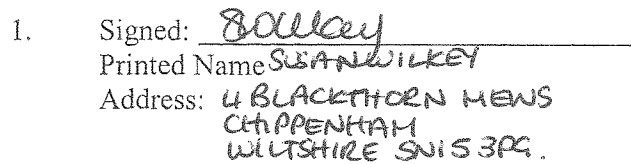 1. Signed:
Printed Name SUSAN WILKEY
Address: 4 BLACKTHORN MEWS
CHIPPENHAM
WILTSHIRE SN15 3PG.